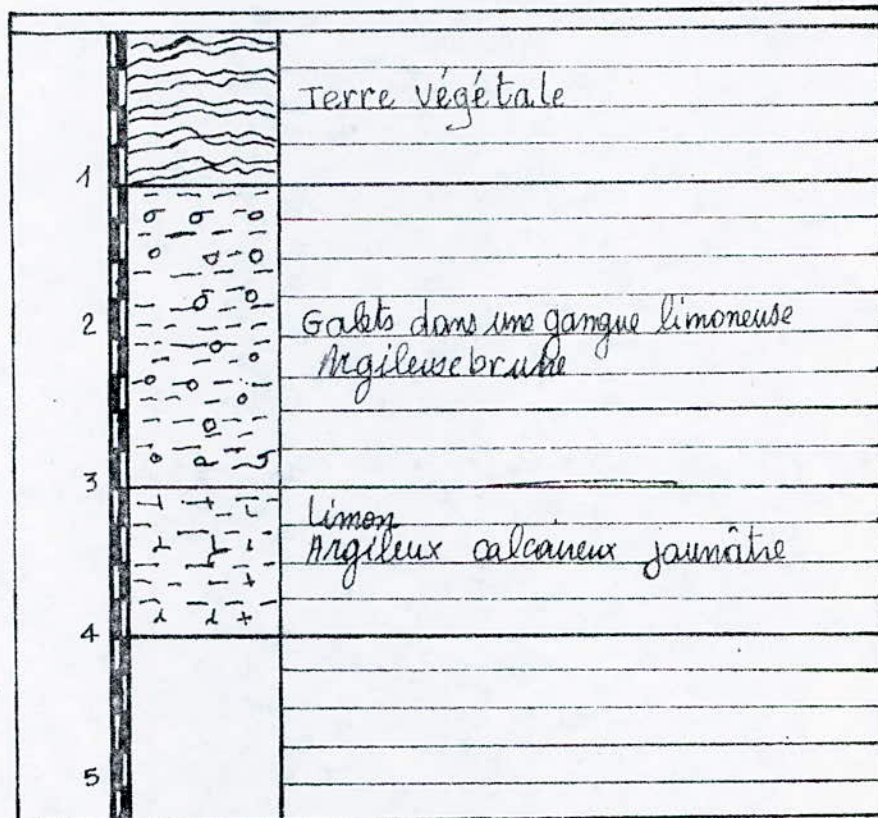 Terre végétale
1
2
Galets dans une gangue limoneuse
Argileuse brune
3
Limon
Argileux calcaireux jaunâtre
4
5